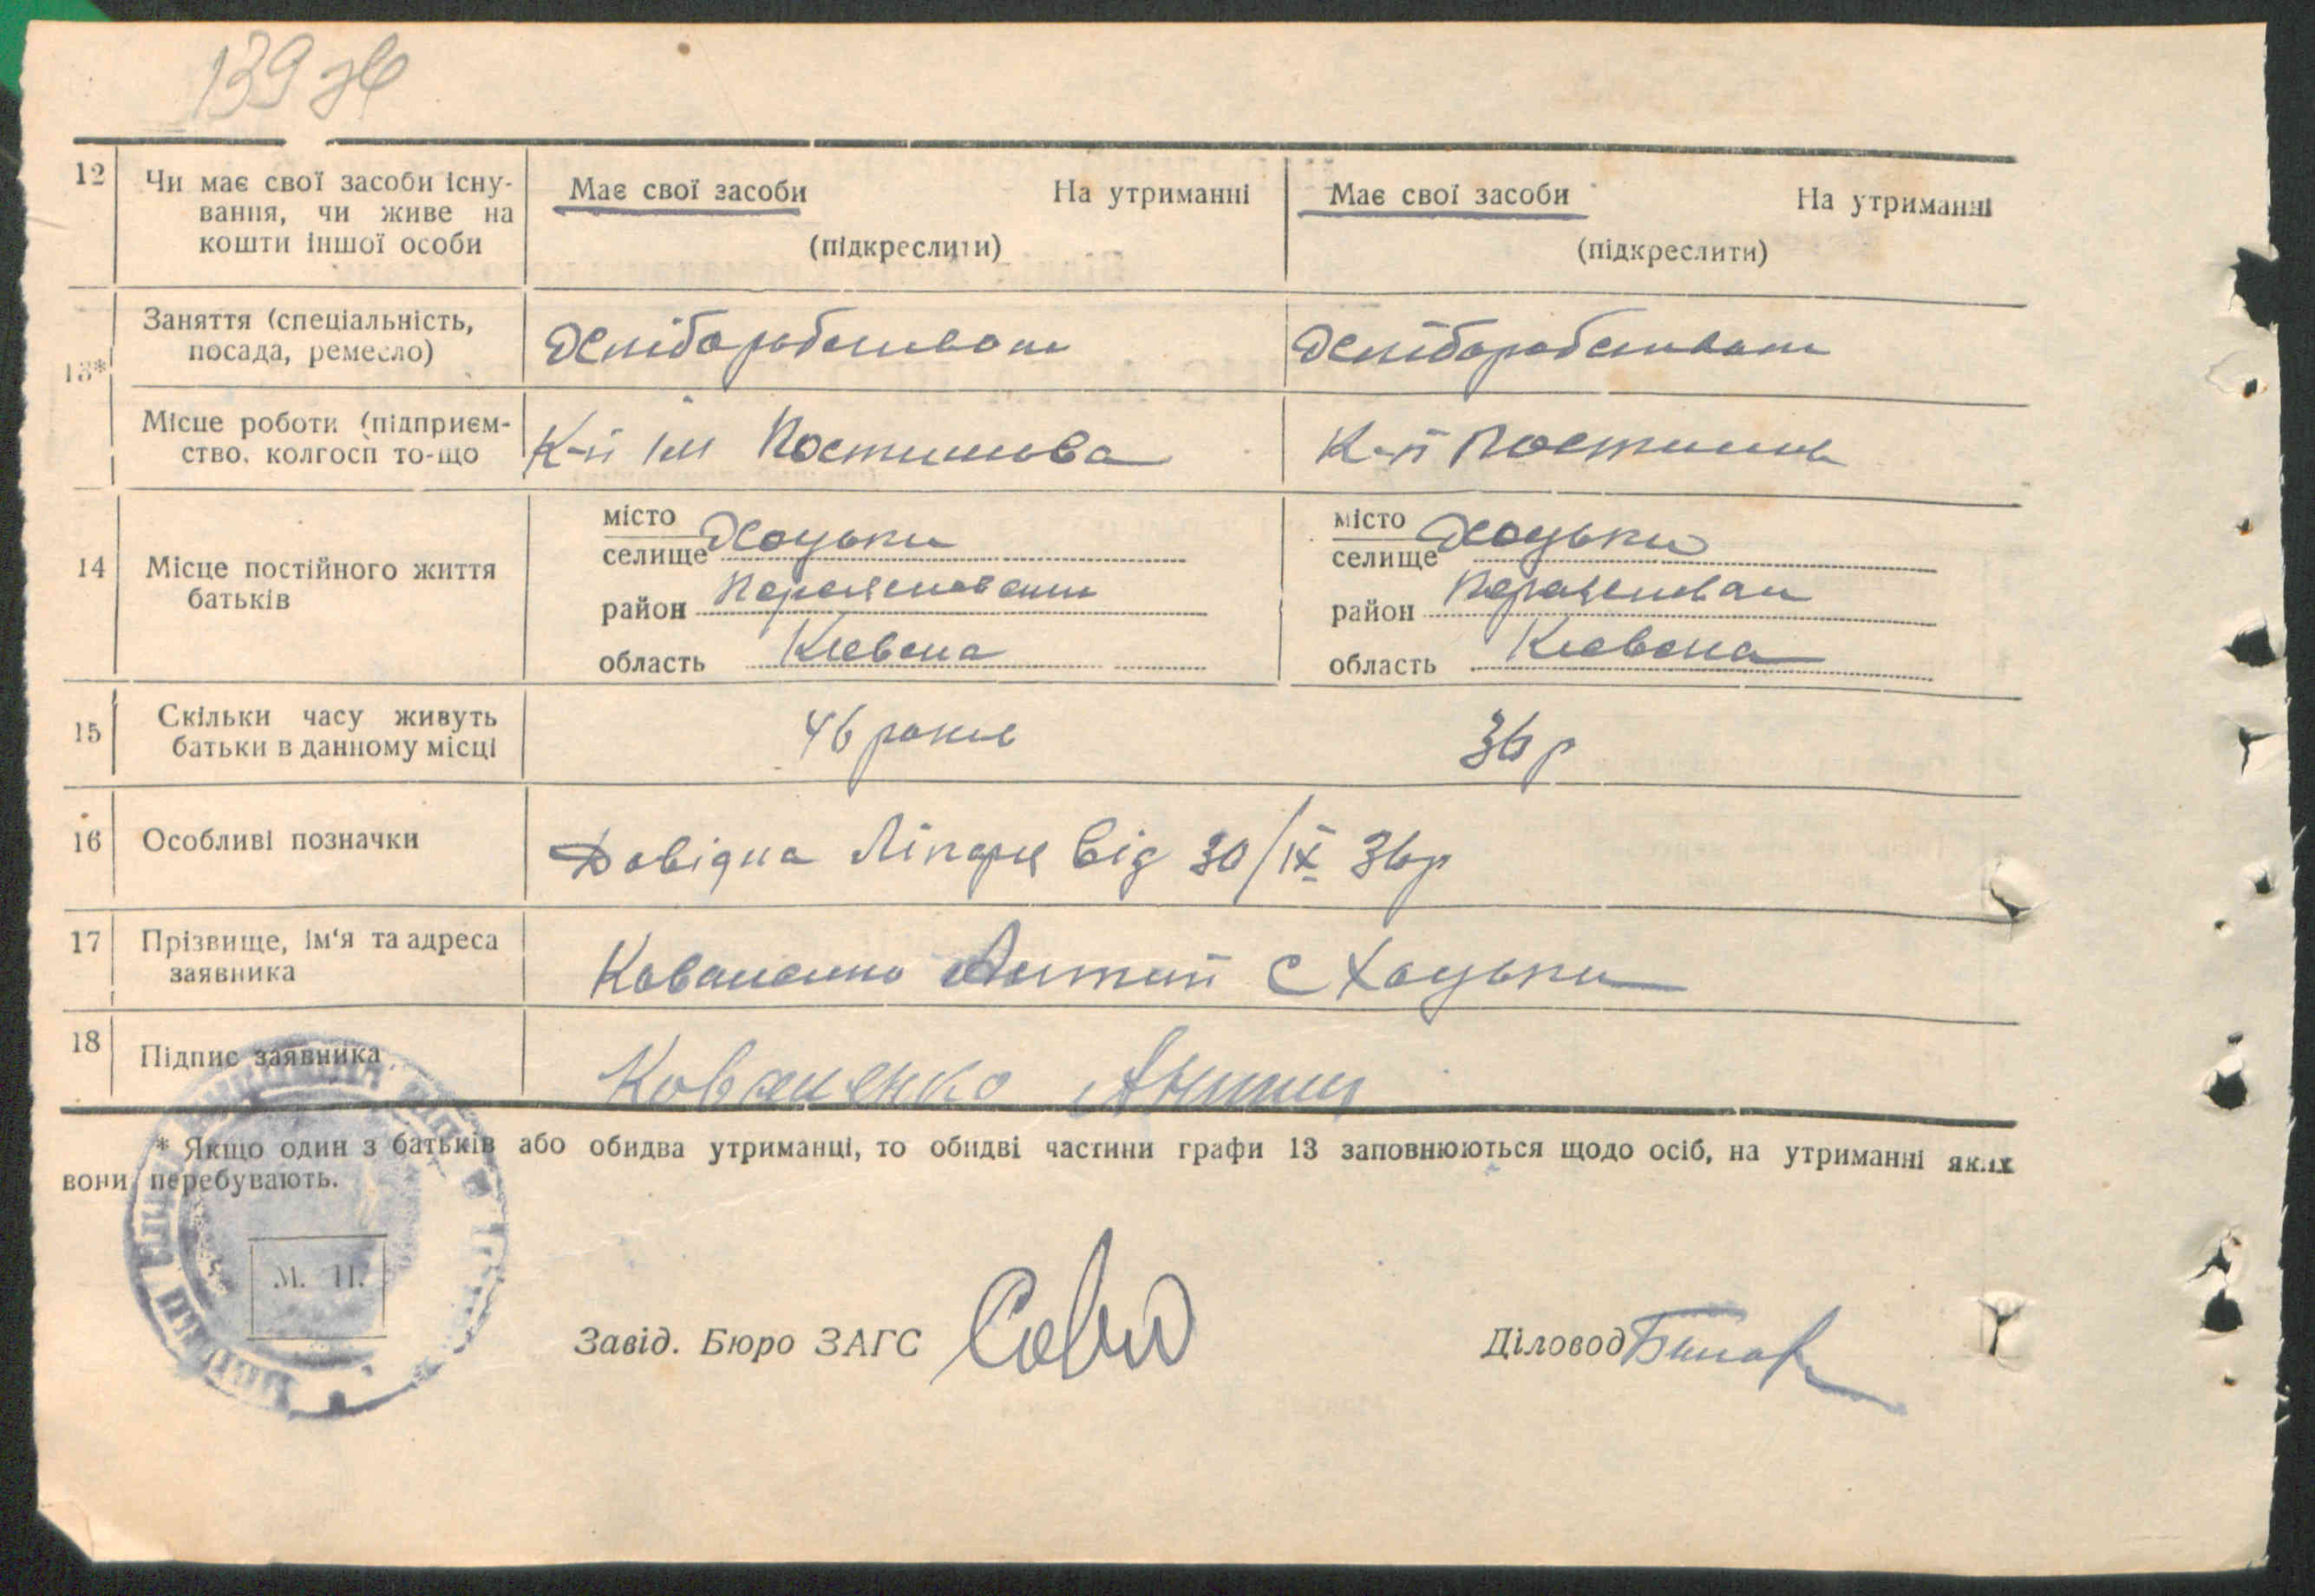 139 зв
12 Чи має свої засоби існу- Має свої засоби На утриманні Має свої засоби На утриманні
вання, чи живе на
кошти іншої особи (підкреслити) (підкреслити)
13* Заняття (спеціальність, Хліборобства Хліборобства
посада, ремесло)
Місце роботи (підприєм- К-п ім Постишева К-п Постишева
ство, колгосп то-що
14 Місце постійного життя батьків
місто Хоцьки місто Хоцьки
селище селище
район Переяславськ район Переяславськ
область Києвська область Києвська
15 Скільки часу живуть 46 років 36 р
батьки в данному місці
16 Особливі позначки Довідка Лікаря від 30/IX 36р
17 Прізвище, ім'я та адреса Коваленко Антип с Хоцьки
заявника
18 Підпис заявника Коваленко Антип
* Якщо один з батьків або обидва утриманці, то обидві частини графи 13 заповнюються щодо осіб, на утриманні яких
вони перебувають.
М. П.
Завід. Бюро ЗАГС Діловод